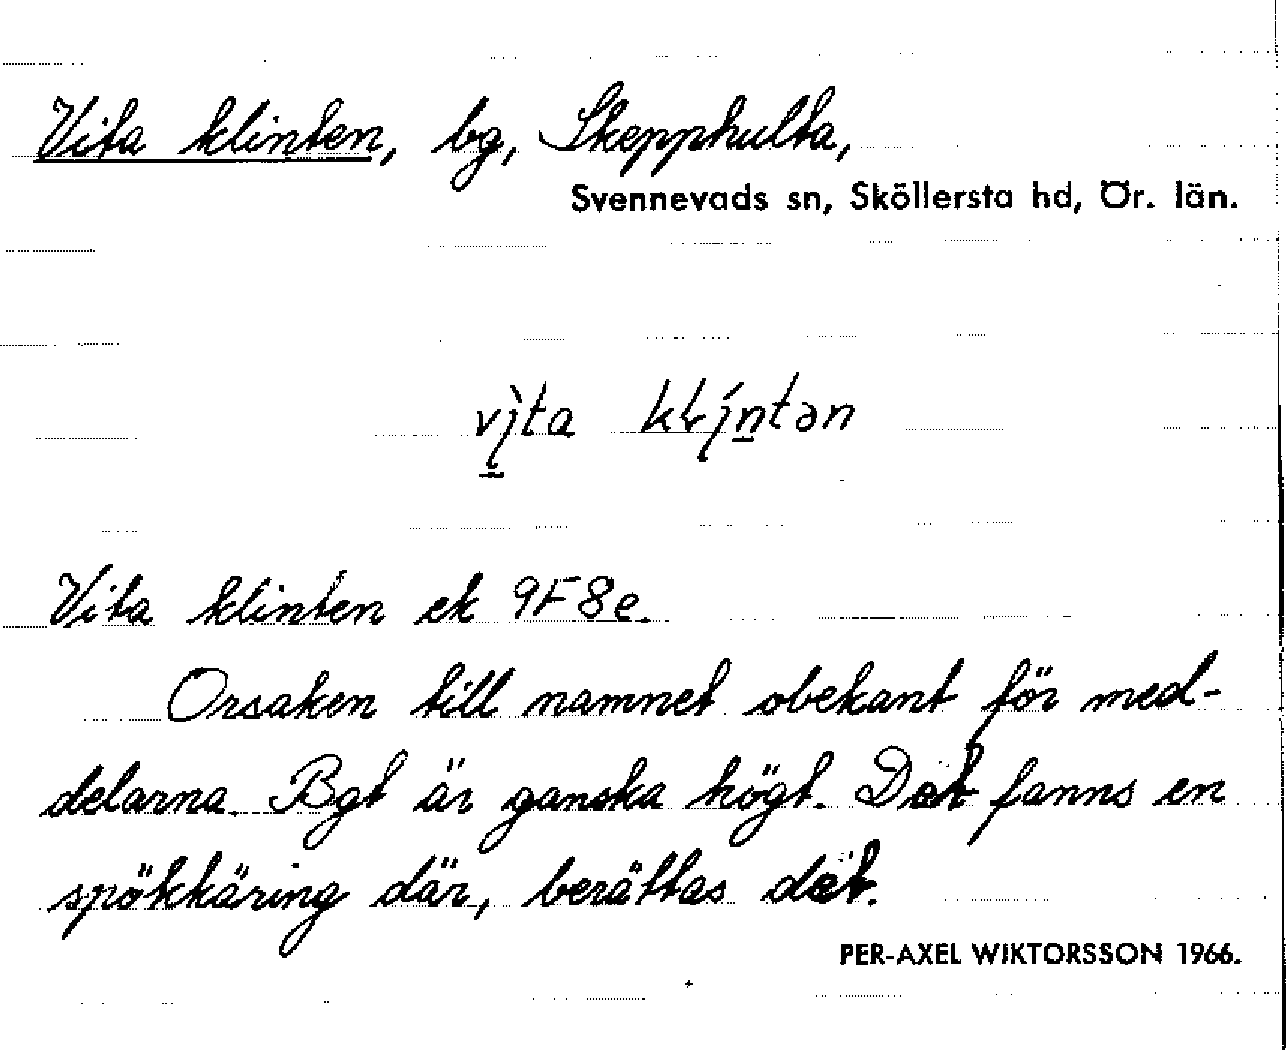 Vita klinten, bg, Skepphulta,
Svennevads sn, Sköllersta hd, Ör. län.
vì̠ta kłín̠tən
Vita klinten ek 9F8e.
Orsaken till namnet obekant för med-
delarna. Bgt är ganska högt. Det fanns en
spökkäring där, berättas det.
PER-AXEL WIKTORSSON 1966.